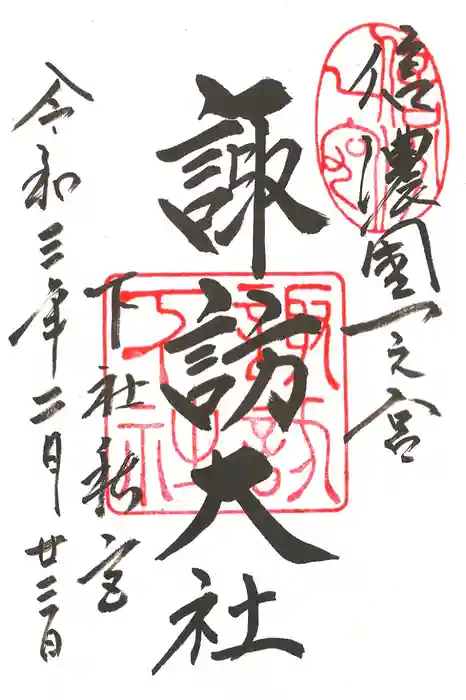 信濃国一之宮
諏訪大社
下社秋宮
令和三年二月廿三日
諏訪
下社